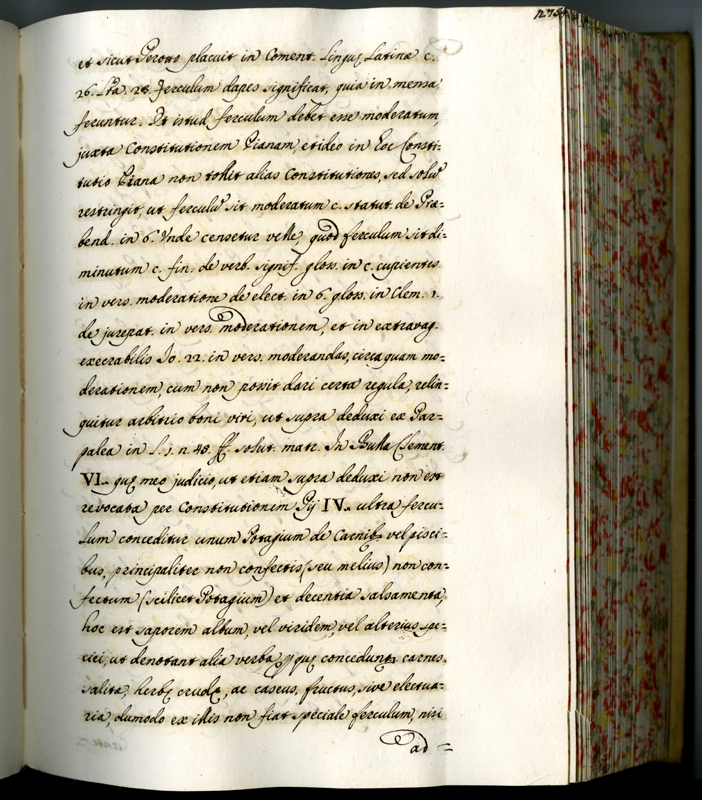 1275
et sicut Peroto placuit in Coment. Linguę Latinæ c.
26. Lra. 28. ferculum dapes significat, quia in mensa
feruntur. Et istud ferculum debet esse moderatum,
juxta Constitutionem Pianam, et ideo in hoc Consti-
tutio Piana non tollit alias Constitutiones, sed solũ
restringit, ut ferculũ sit moderatum c. statut. de Præ-
bend. in 6. Vnde censetur velle, quod ferculum sit di-
minutum c. fin. de verb. signif. glos. in c. cupientes
in vers. moderatione de elect. in 6. glos. in Clem. 1.
de jurepat. in vers. moderationem, et in extravag.
execrabilis Jo. 22. in vers. moderandas, circa quam mo-
derationem, cum non possit dari certa regula, relin-
quitur arbitrio boni viri, ut supra deduxi ex Par-
palea in l. 1. n. 48. ff. solut. matr. In Bulla Clement.
VI. quę meo judicio, ut etiam supra deduxi non est
revocata per Constitutionem Pij IV. ultra fercu-
lum conceditur unum Potagium de Carnibs vel pisci-
bus, principaliter non confectis (seu melius) non con-
fectum (scilicet Potagium) et decentia salsamenta,
hoc est saporem album, vel viridem, vel alterius spe-
ciei, ut denotant alia verba quę concedunt carnes
salita, herbę crudę, ac caseus, fructus, sive electua-
ria, dumodo ex illis non fiat speciale ferculum, nisi
ad